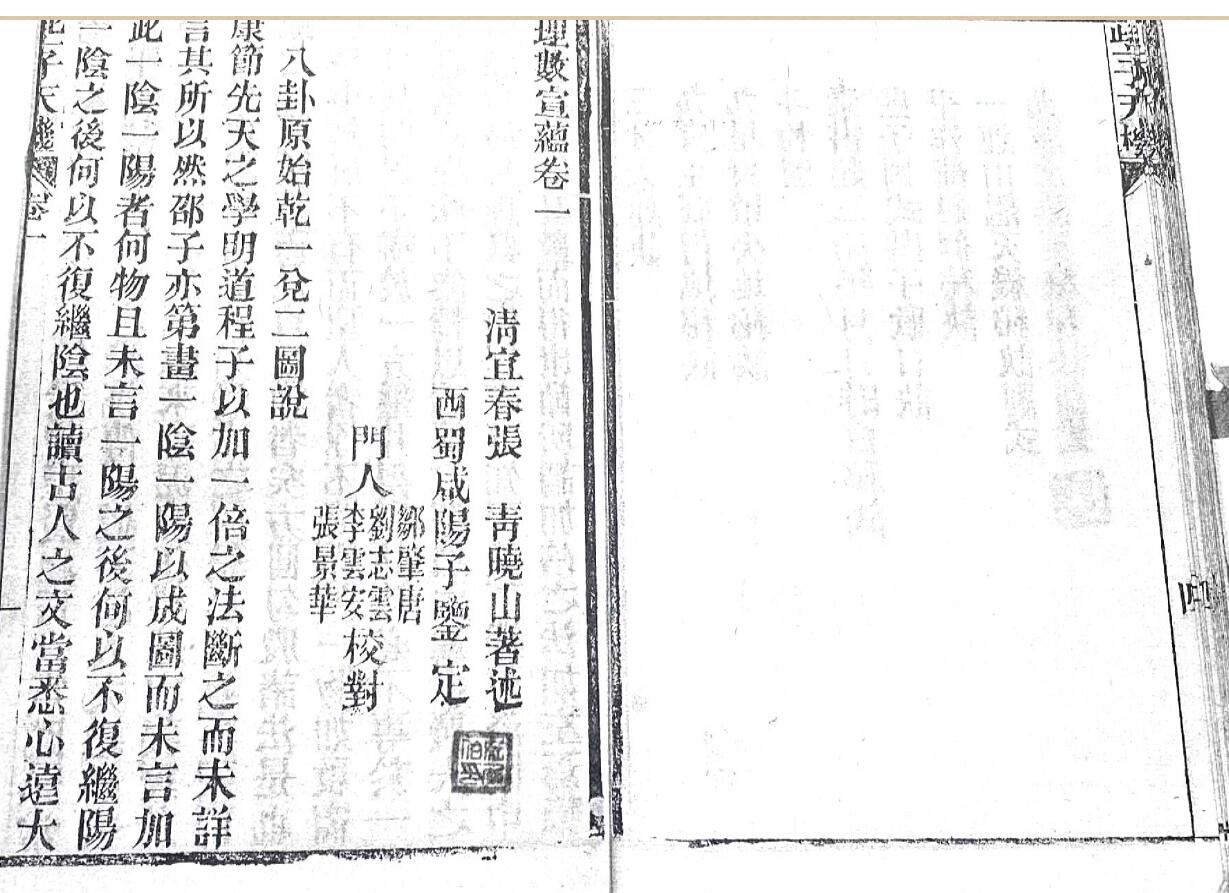 理數宣蘊卷一
清宜春張 青曉山著述
西蜀咸陽子鑒定
門人
鄒肇唐
劉志雲
李雲安
張景華
校對
八卦原始乾一兌二圖說
康節先天之學明道程子以加一倍之法斷之而未詳
言其所以然邵子亦第畫一陰一陽以成圖而未言加
此一陰一陽者何物且未言一陽之後何以不復繼陽
一陰之後何以不復繼陰也讀古人之文當悉心遠大
子天機 卷一
子天機